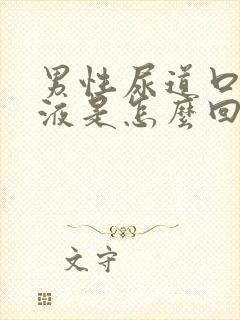 男性尿道口
液是怎麼回
文守